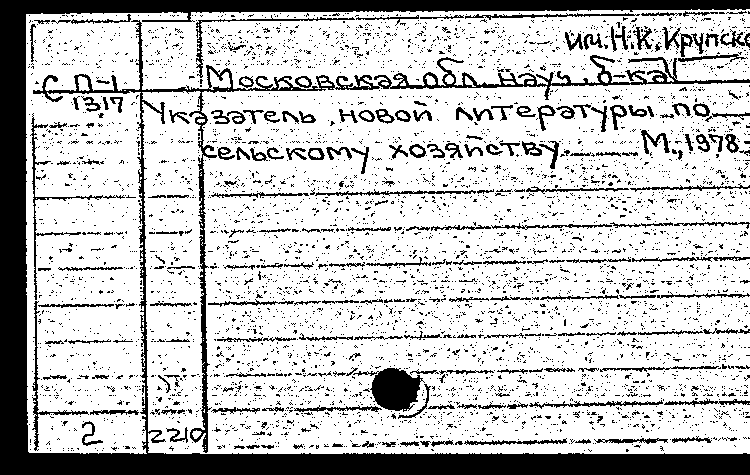 им. Н.К. Крупско
С П-1 Московская обл. науч. б-ка
1317 Указатель новой литературы по
сельскому хозяйству. М., 1978-
2 2210